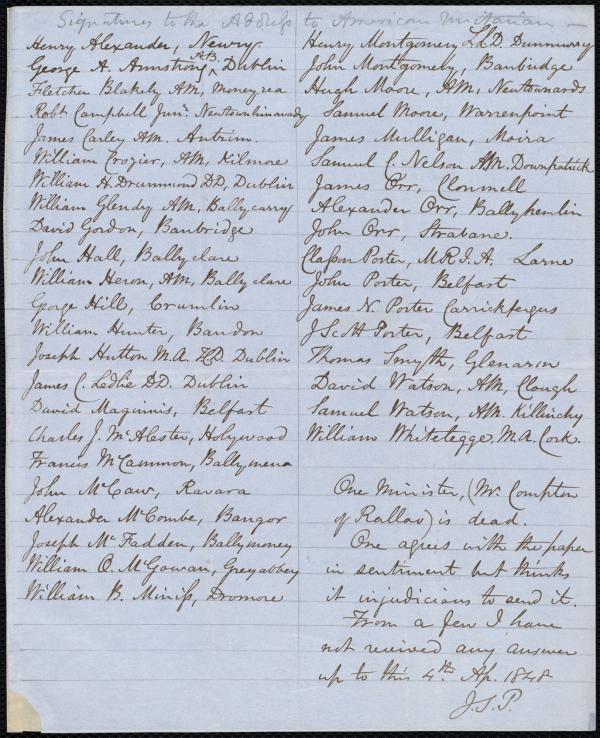 Signatures to the Address to American Unitarian —
Henry Alexander, Newry.
George A. Armstrong, A.B. Dublin
Fletcher Blakely AM, Moneyrea
Robt Campbell Junr. Newtownlimavady
James Carley AM. Antrim.
William Crozier, AM, Kilmore
William H. Drummond DD, Dublin
William Glendy AM, Ballycarry
David Gordon, Banbridge
John Hall, Ballyclare
William Heron, AM, Ballyclare
George Hill, Crumlin
William Hunter, Bandon
Joseph Hutton M.A. Dublin
James C. Ledlie DD. Dublin
David Maginnis, Belfast
Charles J. McAlester, Holywood
Francis McCammon, Ballymena
John McCaw, Ravara
Alexander McCombe, Bangor
Joseph McFadden, Ballymoney
William O. McGowan, Greyabbey
William B. Miniss, Dromore
Henry Montgomery L.L.D. Dunmurry
John Montgomery, Banbridge
Hugh Moore, AM, Newtownards
Samuel Moore, Warrenpoint
James Mulligan, Moira
Samuel C. Nelson AM. Downpatrick
James Orr, Clonmell
Alexander Orr, Ballyhemlin
John Orr, Strabane.
Classon Porter, M.R.I.A. Larne
John Porter, Belfast
James N. Porter Carrickfergus
J. Sc. H Porter, Belfast
Thomas Smyth, Glenarm
David Watson, AM, Clough
Samuel Watson, AM. Killinchy
William Whitelegge. M.A. Cork.
One Minister, (Mr. Compton
of Rallow) is dead.
One agrees with the paper
in sentiment but thinks
it injudicious to send it.
From a few I have
not received any answer
up to this 4th Ap. 1848
J.S.P.